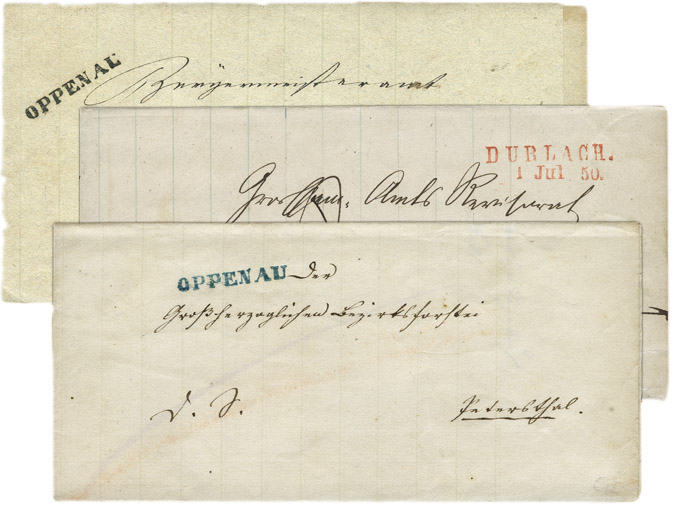 OPPENAU
Bürgermeisteramt
DURLACH.
1 Jul 50.
Amts Revisorat
OPPENAU Der
Großherzoglichen Bezirksforstei
D. S.
Petersthal.